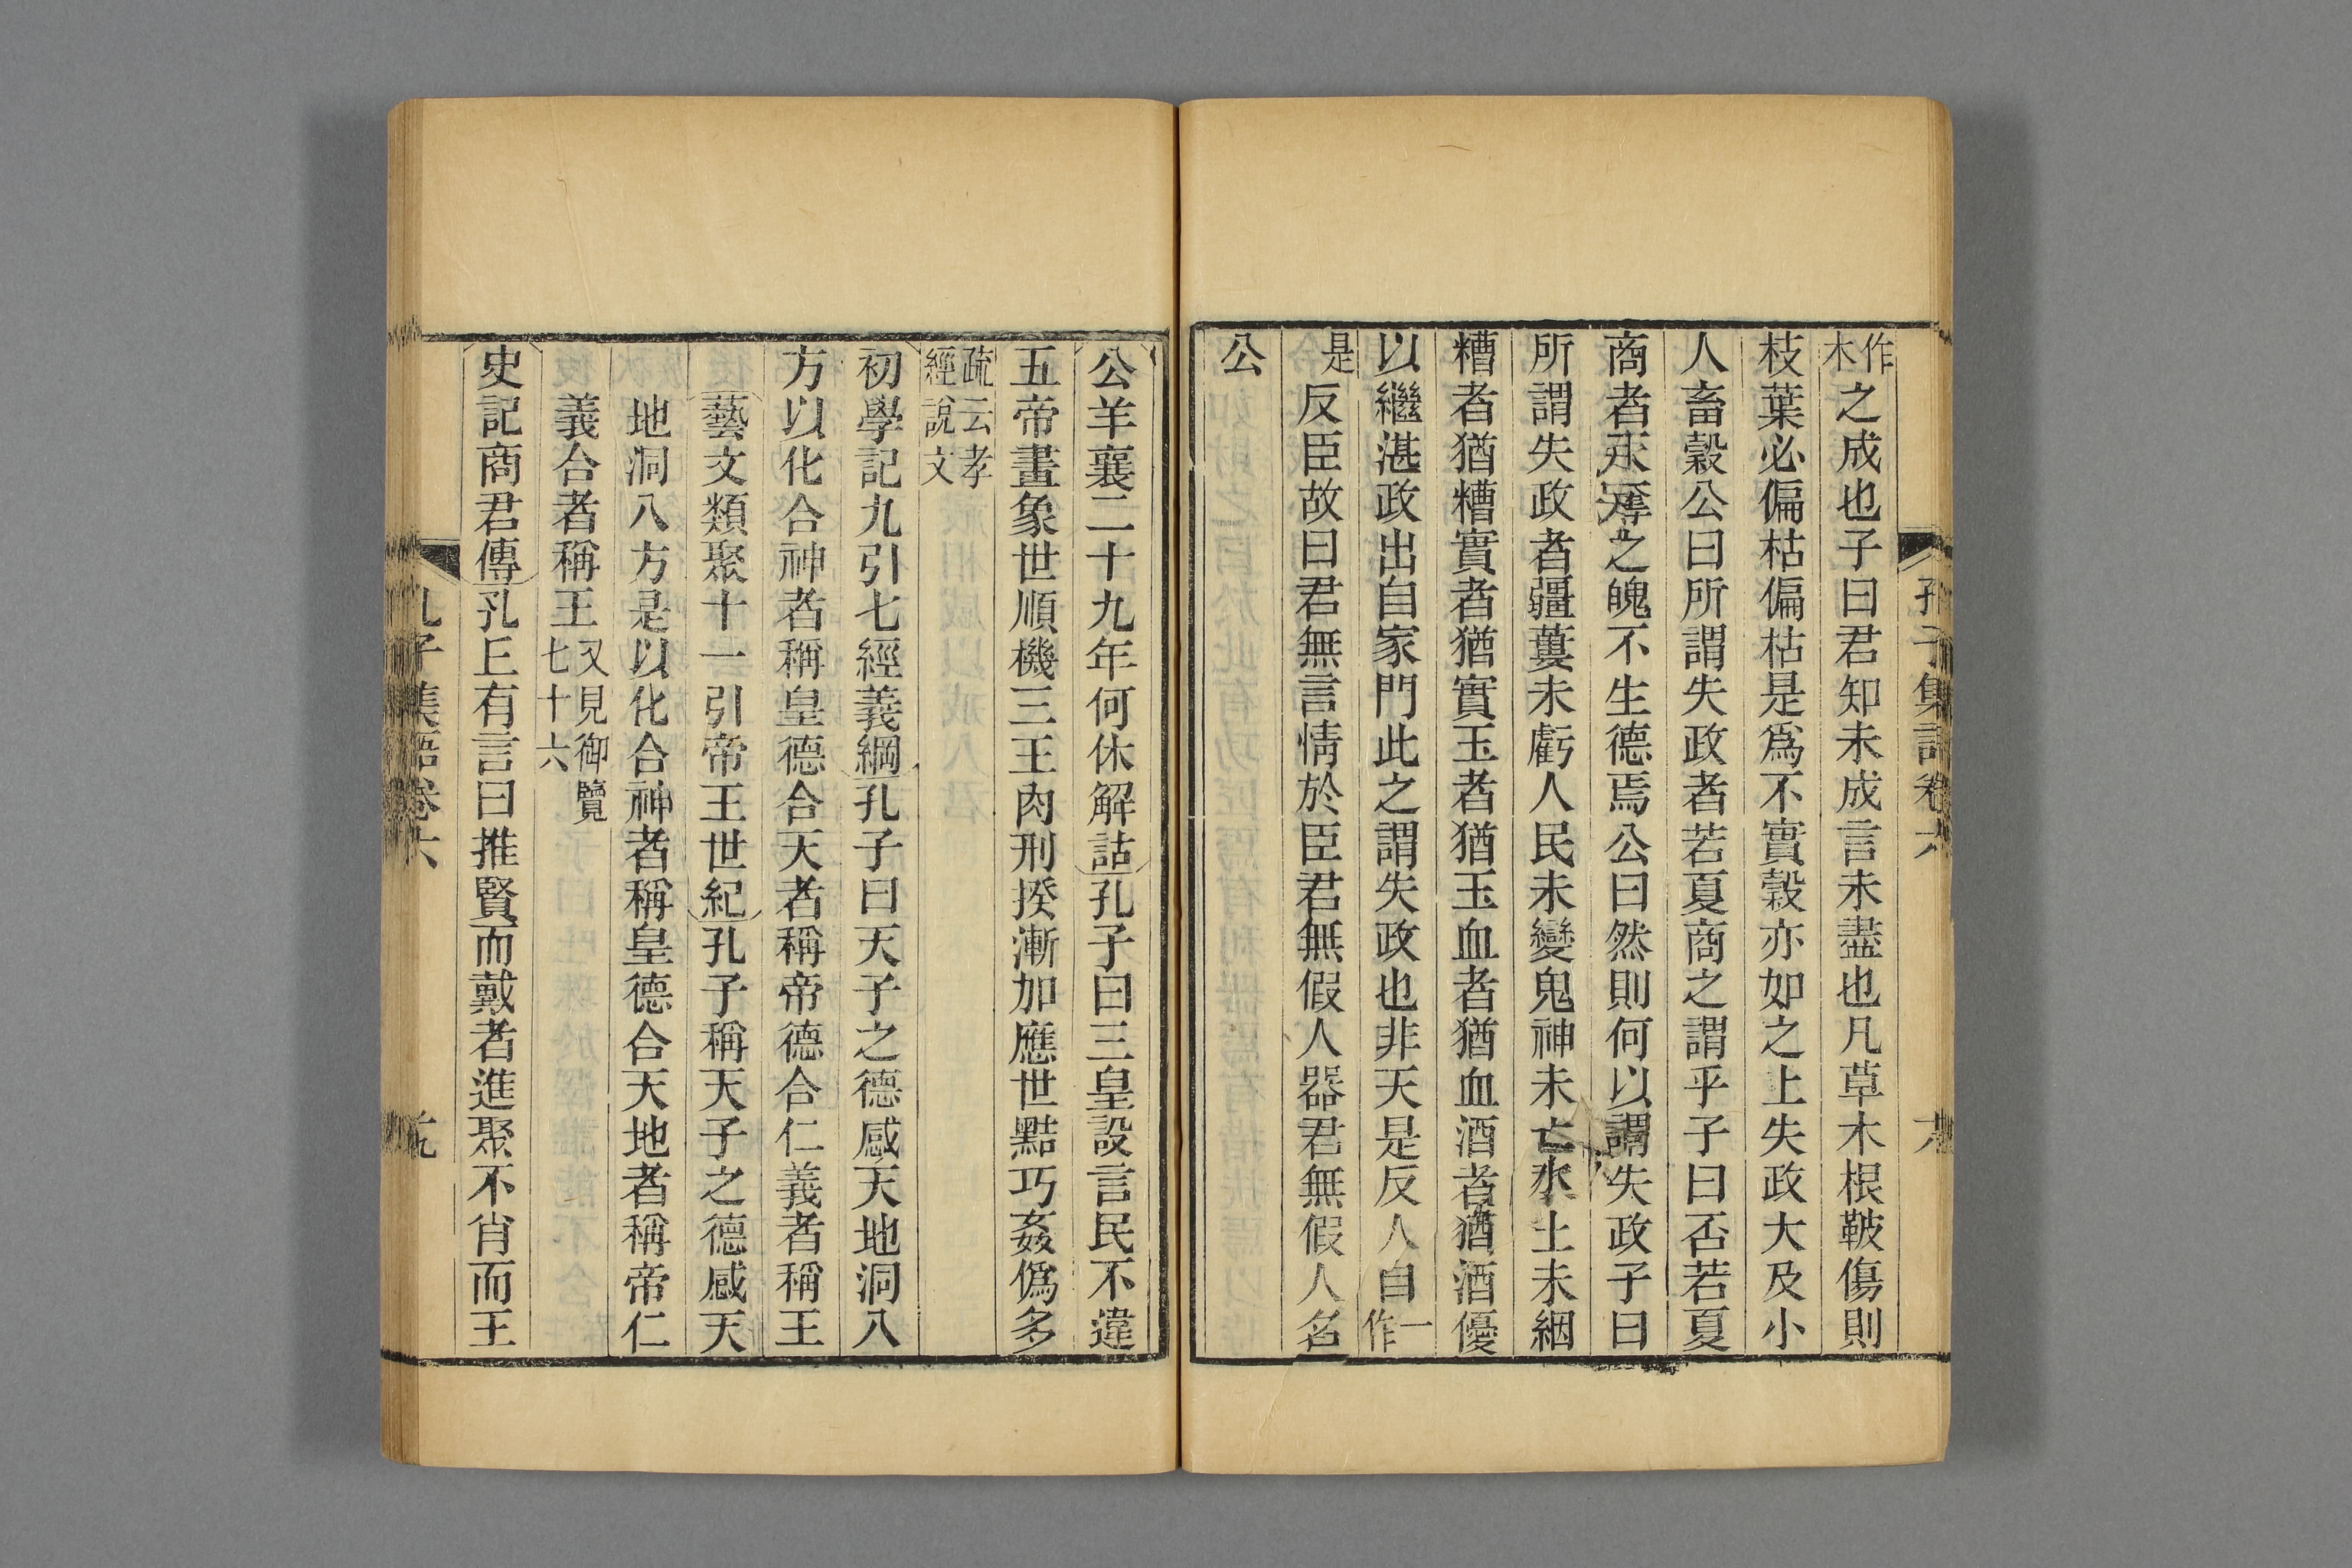 孔子集語卷六 大
作木之成也子曰君知未成言未盡也凡草木根鞁傷則
枝葉必偏枯偏枯是爲不實穀亦如之上失政大及小
人畜穀公曰所謂失政者若夏商之謂乎子曰否若夏
商者天奪之魄不生德焉公曰然則何以謂失政子曰
所謂失政者疆蔞未虧人民未變鬼神未亡水土未絪
糟者猶糟實者猶實玉者猶玉血者猶血酒者猶酒優
以繼湛政出自家門此之謂失政也非天是反人自一作
是反臣故曰君無言情於臣君無假人器君無假人名
公
公羊襄二十九年何休解詁孔子曰三皇設言民不違
五帝畫象世順機三王肉刑揆漸加應世黠巧姦僞多
疏云孝經說文
初學記九引七經義綱孔子曰天子之德感天地洞八
方以化合神者稱皇德合天者稱帝德合仁義者稱王
藝文類聚十一引帝王世紀孔子稱天子之德感天
地洞八方是以化合神者稱皇德合天地者稱帝仁
義合者稱王又見御覽七十六
史記商君傳孔丘有言曰推賢而戴者進聚不肖而王
孔子集語卷六